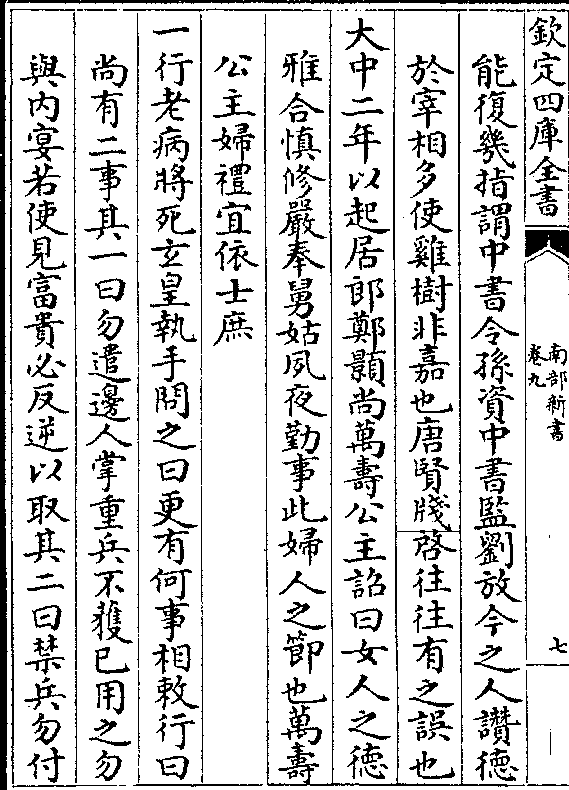 欽定四庫全書
南部新書
卷九
七
能復幾指謂中書令孫資中書監劉放今之人讚德
於宰相多使雞樹非嘉也唐賢牋啓往往有之誤也
大中二年以起居郎鄭顥尚萬壽公主詔曰女人之德
雅合慎修嚴奉舅姑夙夜勤事此婦人之節也萬壽
公主婦禮宜依士庶
一行老病將死玄皇執手問之曰更有何事相敕行曰
尚有二事其一曰勿遣邊人掌重兵不獲已用之勿
與內宴若使見富貴必反逆以取其二曰禁兵勿付